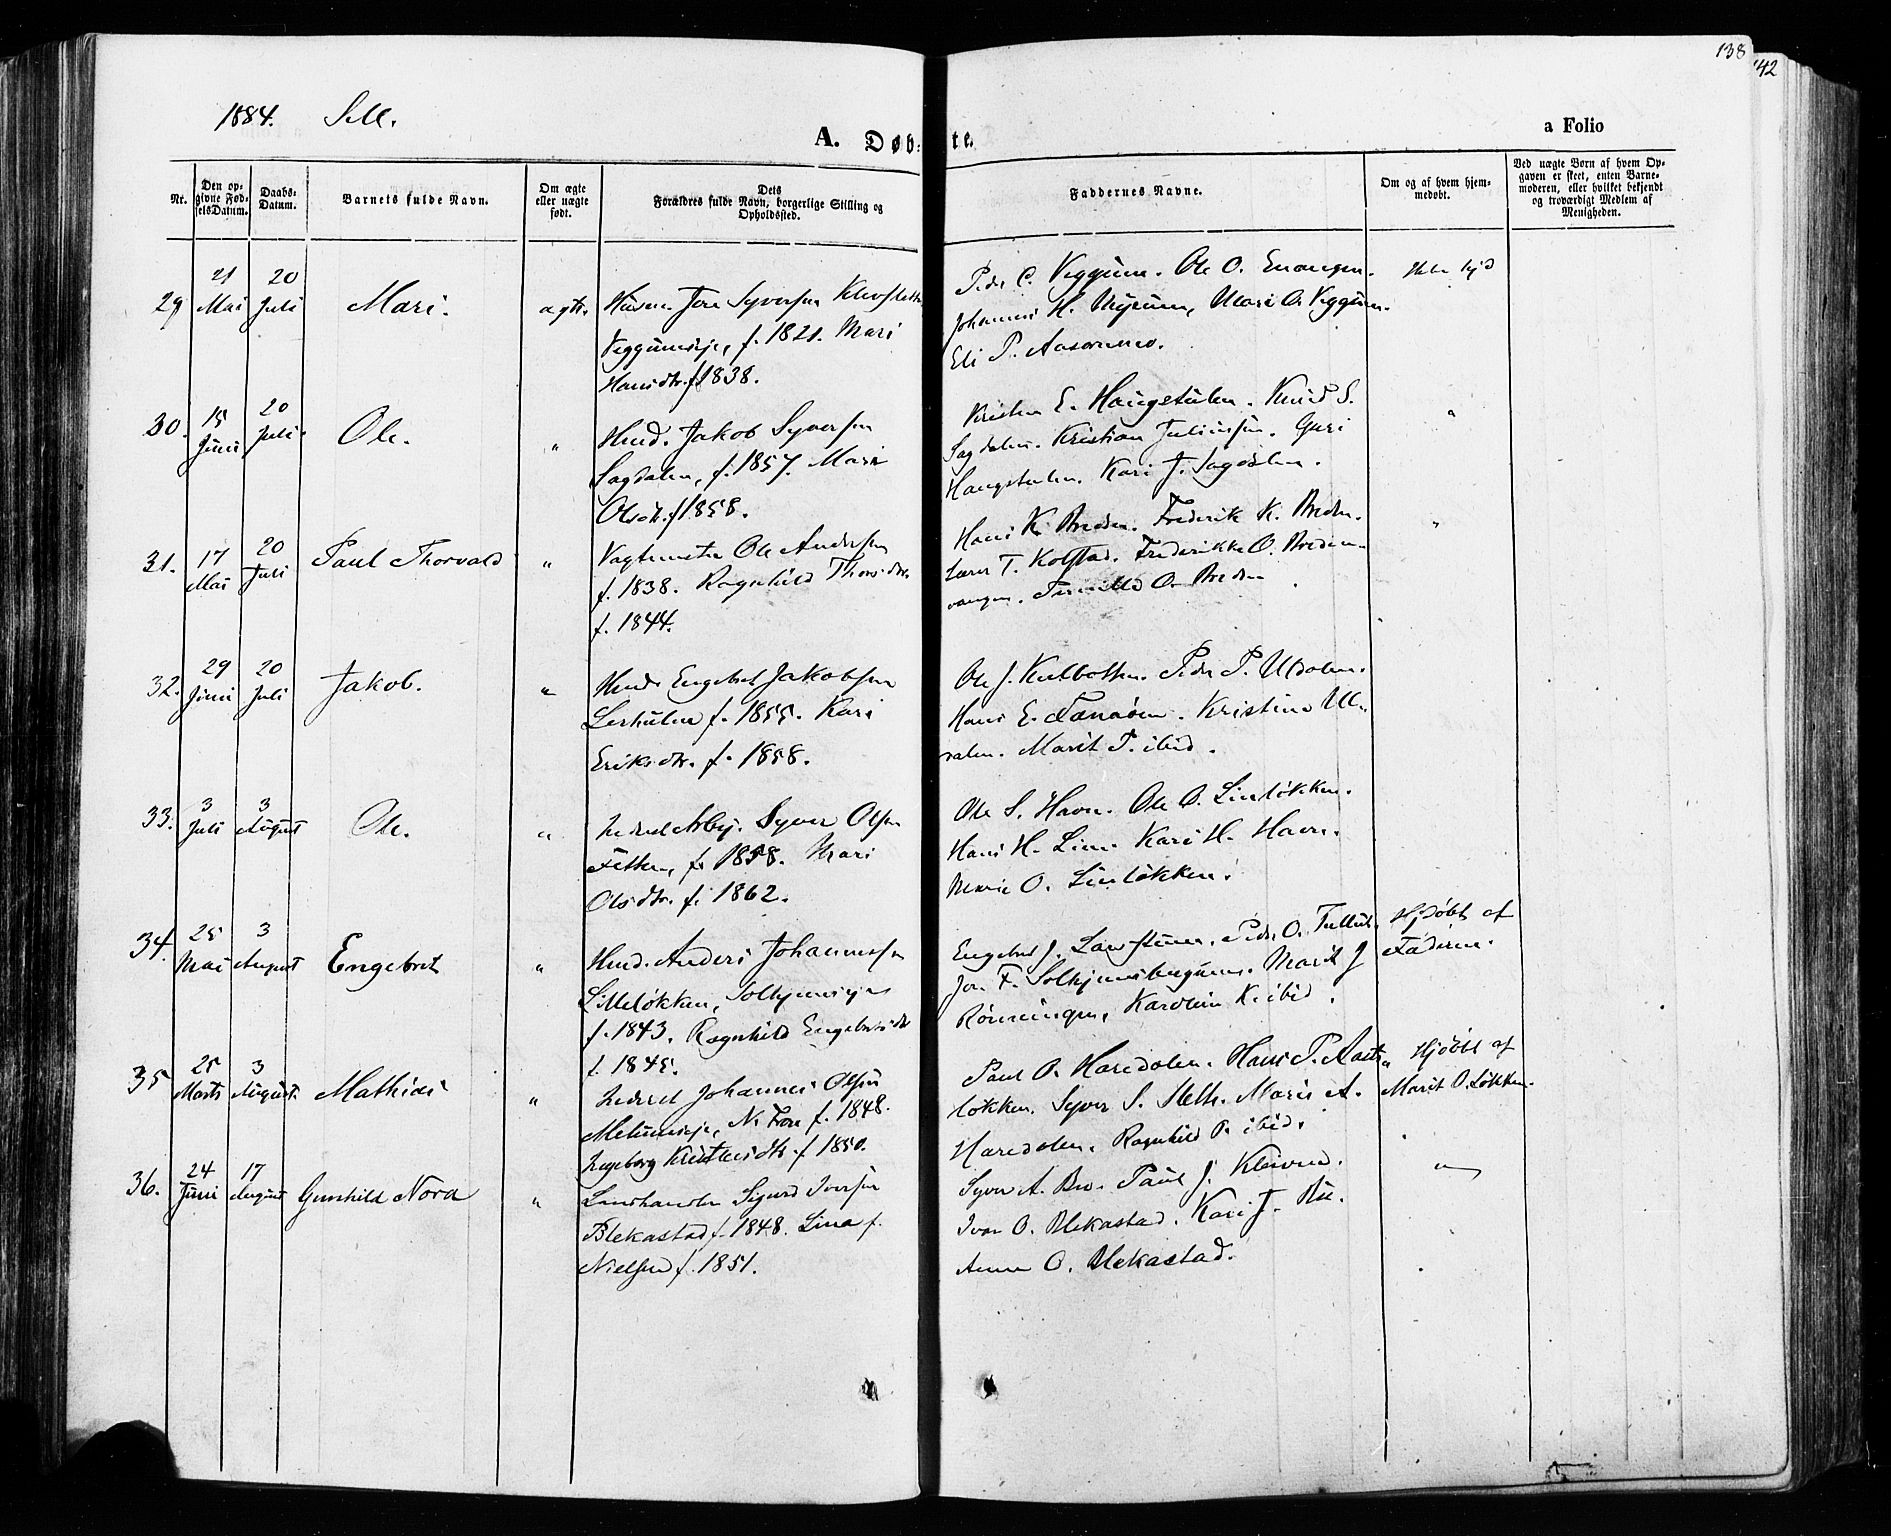 138
142
1884. Sell.
A. Døb=
te.
a Folio
Nr.
Den op-
givne Fød-
selsDatum.
Daabs-
Datum.
Barnets fulde Navn.
Om ægte
eller uægte
født.
Dets
Forældres fulde Navn, borgerlige Stilling og
Opholdssted.
Faddernes Navne.
Om og af hvem hjem-
medøbt.
Ved uægte Børn af hvem Op-
gaven er skeet, enten Barne-
moderen, eller hvilket bekjendt
og troværdigt Medlem af
Menigheden.
29
21
Mai
20
Juli
Mari.
ægte.
Husm. Tore Syversen
Veggumseje, f. 1821. Mari
Hansdtr. f. 1838.
Peder C. Veggum. Ole O.
Johannes H. Myrum, Mari O. Veggum.
Eli P.
30.
15
Juni
20
Juli
Ole.
"
Husmd. Jakob Syversen
Sagdalen, f. 1857. Mari
Olsdtr. f. 1858.
Kristen E. Haugstulen. Knud S.
Sagdalen. Kristian Juliussen. Guri
Haugstulen. Kari J. Sagdalen.
"
31.
17
Mai
20
Juli
Paul Thorvald
"
Vogtermester Ole Andersen
f. 1838. Ragnhild Thorsdtr.
f. 1844.
Hans K. Breden. Frederik K. Breden.
Lars T. Kolstad. Frederikke O. Breden-
vangen. O. Breden
"
32.
29
Juni
20
Juli
Jakob.
"
Husmd. Engebret Jakobsen
Lerhulen f. 1855. Kari
Eriksdtr. f. 1858.
Ole J. Kulbotten. Peder P. Uldalen.
Hans E. Kristine Ul-
dalen. Marit P. ibid.
33.
3
Juli
3
August
Ole.
"
Inderst Arbj. Syver Olsen
f. 1858. Mari
Olsdtr. f. 1862.
Ole S. Havn. Ole O. Linløkken.
Hans H. Lien. Kari H. Havn.
Marie O. Linløkken.
34.
25
Mai
3
August
Engebret
"
Husmd. Anders Johannessen
Lilleløkken, Solhjemseje
f. 1843. Ragnhild Engebretsdtr
f. 1845.
Engebret J. Peder O.
Jon F. Marit J
Rønningen, Karoline K. ibid.
Hjdøbt af
Faderen.
35
25
Marts
3
August.
Mathias
"
Inderst Johannes Olsen
f. 1848.
Ingeborg f. 1850.
Paul O. Haredalen. Hans P.
løkken. Syver S. Marie A.
Haredalen. Ragnhild P. ibid.
Hjdøbt af
Marit O. Løkken.
36.
24
Juni
17
August
Gunhild Nora
"
Landhandler Sigurd Iversen
Blekastad f. 1848. Lina f.
Nielsen f. 1851.
Syver A. Bu. Paul J. Kleiven.
Iver O. Blekastad. Kari J. Bu.
Anne O. Blekastad.
"